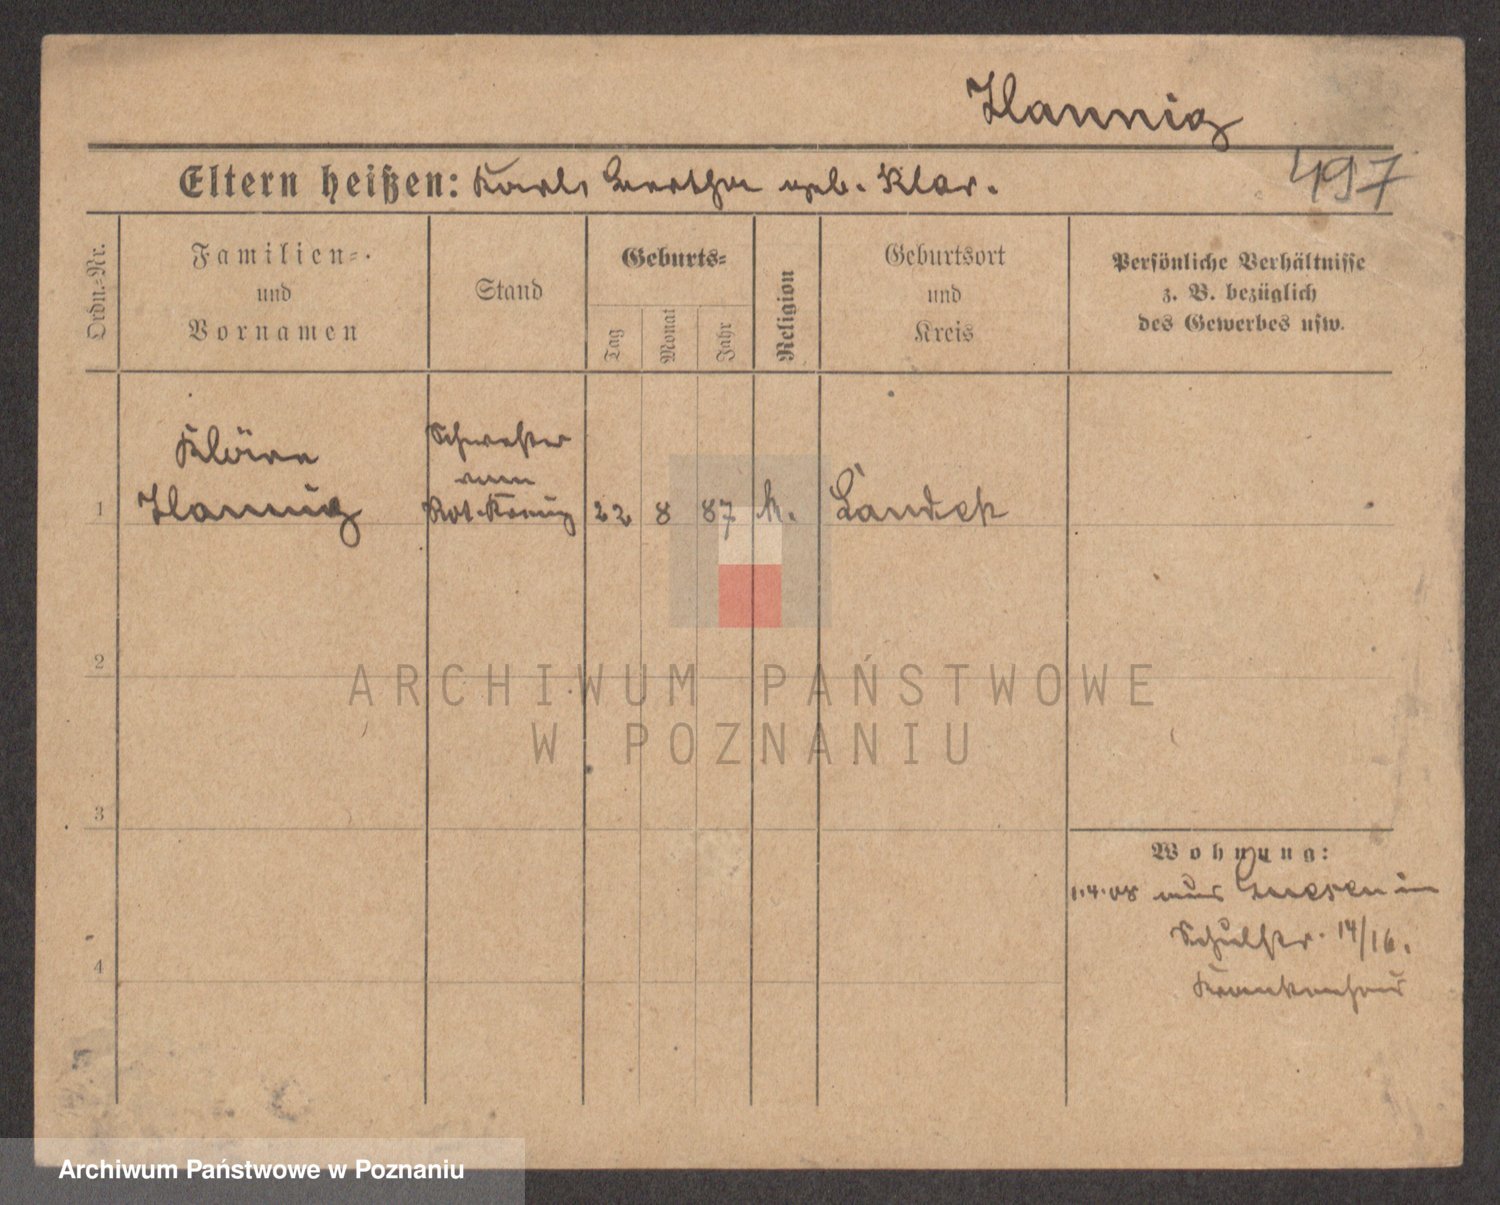 Hannig
Eltern heißen: Karl, Bertha geb. Klar.
497
Ordn.-Nr.
Familien-
und
Vornamen
Stand
Geburts-
Tag
Monat
Jahr
Religion
Geburtsort
und
Kreis
Persönliche Verhältnisse
z. B. bezüglich
des Gewerbes usw.
1
Kläre
Hannig
Schwester
vom
Rot. Kreuz
22
8
87
k.
Landek
2
ARCHIWUM PAŃSTWOWE
W POZNANIU
3
4
Wohnung:
1.4.08 aus Gnesen in
Schulstr. 14/16.
Krankenhaus
Archiwum Państwowe w Poznaniu